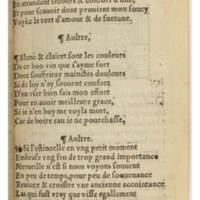 En attendant secours & confort d'une,
Et pour scauoir dont prouient mon soucy
Voyez le tort d'amour & de fortune.
¶ Aultre.
¶ Blanc & clairet sont les couleurs
De ce bon vin que i'ayme fort
Dont souffriray mainctes douleurs
Si de luy n'ay souuent confort
D'en vser bien fais mon effort
Pour en auoir meilleure grace,
Si ie n'en boy me voyla mort,
Car de boire eau ie ne pourchasse.
¶ Aultre.
Si l'estincelle en vng petit moment
Embrase vng feu de trop grand importance
Merueille n'est si nous voyons souuent
En peu de temps, pour peu de souuenance
Reniure & croistre vne ancienne accointance
Las qui fust vray que visse egallement